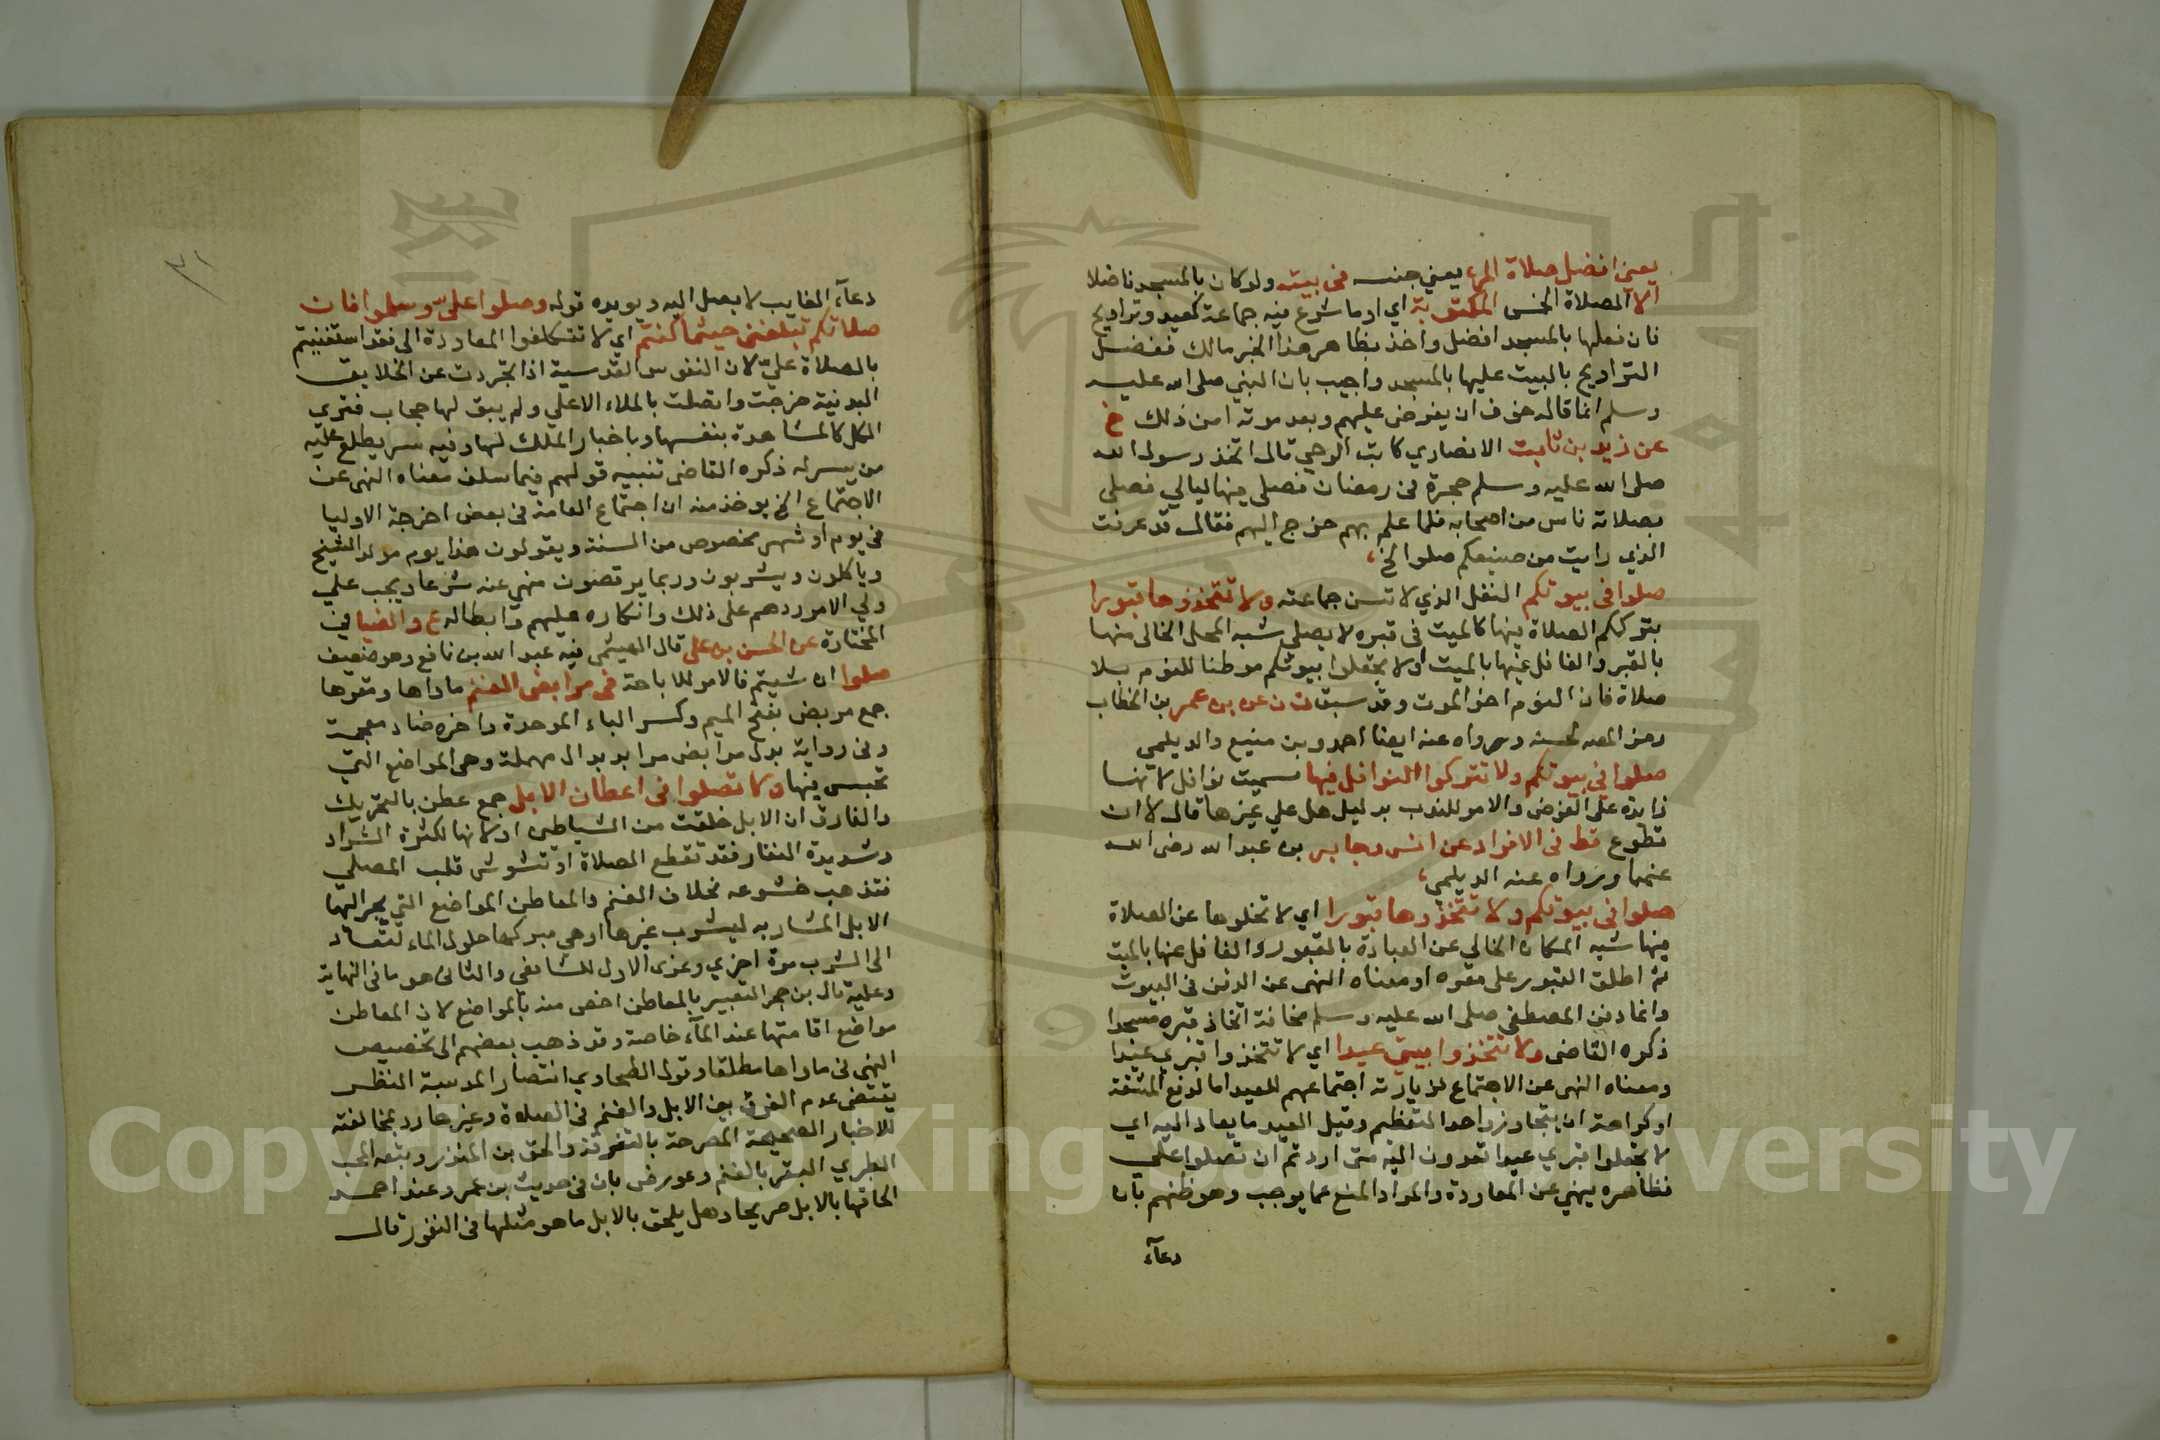 يعني افضل صلاة المرء يعني جنسه في بيته ولو كان بالمسجد فاضلا
الا الصلاة الخمس المكتوبة اي او ما شرع فيه جماعة كعيد وتراويح
فان فعلها بالمسجد افضل واخذ بظاهر هذا الخبر مالك ففضل
التراويح بالبيت عليها بالمسجد واجيب بان النبي صلى الله عليه
وسلم انما قاله خوف ان يفرض عليهم وبعد موته امن ذلك خ
عن زيد بن ثابت الانصاري كاتب الوحي قال اتخذ رسول الله
صلى الله عليه وسلم حجرة في رمضان فصلى فيها ليالي فصلى
بصلاته ناس من اصحابه فلما علم بهم خرج اليهم فقال قد عرفت
الذي رايت من صنيعكم صلوا الخ
صلوا في بيوتكم النفل الذي لا تسن جماعته ولا تتخذوها قبورا
بترككم الصلاة فيها كالميت في قبره لا يصلي شبه المحل الخالي منها
بالقبر والغافل عنها بالميت او لا تجعلوا بيوتكم موطنا للنوم بلا
صلاة فان النوم اخو الموت وقد سبق ت ن عن بن عمر بن الخطاب
رمز المص لحسنه ورواه عنه ايضا احمد وبن منيع والديلمي
صلوا في بيوتكم ولا تتركوا النوافل فيها سميت نوافل لانها
زايدة على الفرض والامر للندب بدليل هل علي غيرها قال لا ان
تطوع قط في الافراد عن انس وجابر بن عبد الله رضي الله
عنهما ورواه عنه الديلمي
صلوا في بيوتكم ولا تتخذوها قبورا اي لا تخلوها عن الصلاة
فيها شبه المكان الخالي عن العبادة بالقبور والغافل عنها بالميت
ثم اطلق القبور على مقره او معناه النهي عن الدفن في البيوت
وانما دفن المصطفى صلى الله عليه وسلم مخافة اتخاذ قبره مسجدا
ذكره القاضي ولا تتخذوا بيتي عيدا اي لا تتخذوا قبري عيدا
ومعناه النهي عن الاجتماع لزيارته اجتماعهم للعيد اما لدفع المشقة
او كراهة ان يتجاوزوا حد التعظيم وقيل العيد ما يعاد اليه اي
لا تجعلوا قبري عيدا تعودون اليه متى اردتم ان تصلوا علي
فظاهره ينهي عن المعاودة والمراد المنع عما يوجبه وهو ظنهم بان
دعآء
٣١
دعآء الغايب لا يصل اليه ويويده قوله وصلوا علي وسلموا فان
صلاتكم تبلغني حيثما كنتم اي لا تتكلفوا المعاودة الي فقد استغنيتم
بالصلاة علي لان النفوس القدسية اذا تجردت عن العلايق
البدنية عرجت واتصلت بالملاء الاعلى ولم يبق لها حجاب فتري
الكل كالمشاهدة بنفسها وباخبار الملك لها وفيه سر يطلع عليه
من يسر له ذكره القاضي تنبيه قولهم فيما سلف معناه النهي عن
الاجتماع الخ يوخذ منه ان اجتماع العامة في بعض اضرحة الاوليا
في يوم او شهر مخصوص من السنة ويقولون هذا يوم مولد الشيخ
وياكلون ويشربون وربما يرقصون منهي عنه شرعا ويجب على
ولي الامر ردهم على ذلك وانكاره عليهم وابطاله ع والضيا في
المختارة عن الحسن بن علي قال الهيثمي فيه عبد الله بن نافع وهو ضعيف
صلوا ان شيتم فالامر للاباحة في مرابض الغنم ماواها ومقرها
جمع مربض بفتح الميم وكسر الباء الموحدة واخره ضاد معجمة
وفي رواية بدل مرابض مرابد بدال مهملة وهي المواضع التي
تحبس فيها ولا تصلوا في اعطان الابل جمع عطن بالتحريك
والفارق ان الابل خلقت من الشياطين او لانها لكثرة الشراد
وشديدة النفار فقد تقطع الصلاة او تشوش قلب المصلي
فتذهب خشوعه بخلاف الغنم والمعاطن المواضع التي يجر اليها
الابل الشاربه ليشرب غيرها او هي مبركها حول الماء لتعاد
الى الشرب مرة اخري وعزى الاول للشافعي والثاني هو ما في النهاية
وعليه قال بن حجر التعبير بالمعاطن اخص منه بالمواضع لان المعاطن
مواضع اقامتها عند المآء خاصة وقد ذهب بعضهم الى تخصيص
النهي في ماواها مطلقا وقول الطحاوي انتصارا لمذهبه النظر
يقتضي عدم الفرق بين الابل والغنم في الصلاة وغيرها رد بمخالفته
للاخبار الصحيحة المصرحة بالتفرقة والحق بن المنذر وتبعه المحب
الطبري البقر بالغنم وعورض بان في حديث بن عمر وعند احمد
الحاقها بالابل صريحا وهل يلحق بالابل ما هو مثلها في النفور قال
Copyright © King Saud University